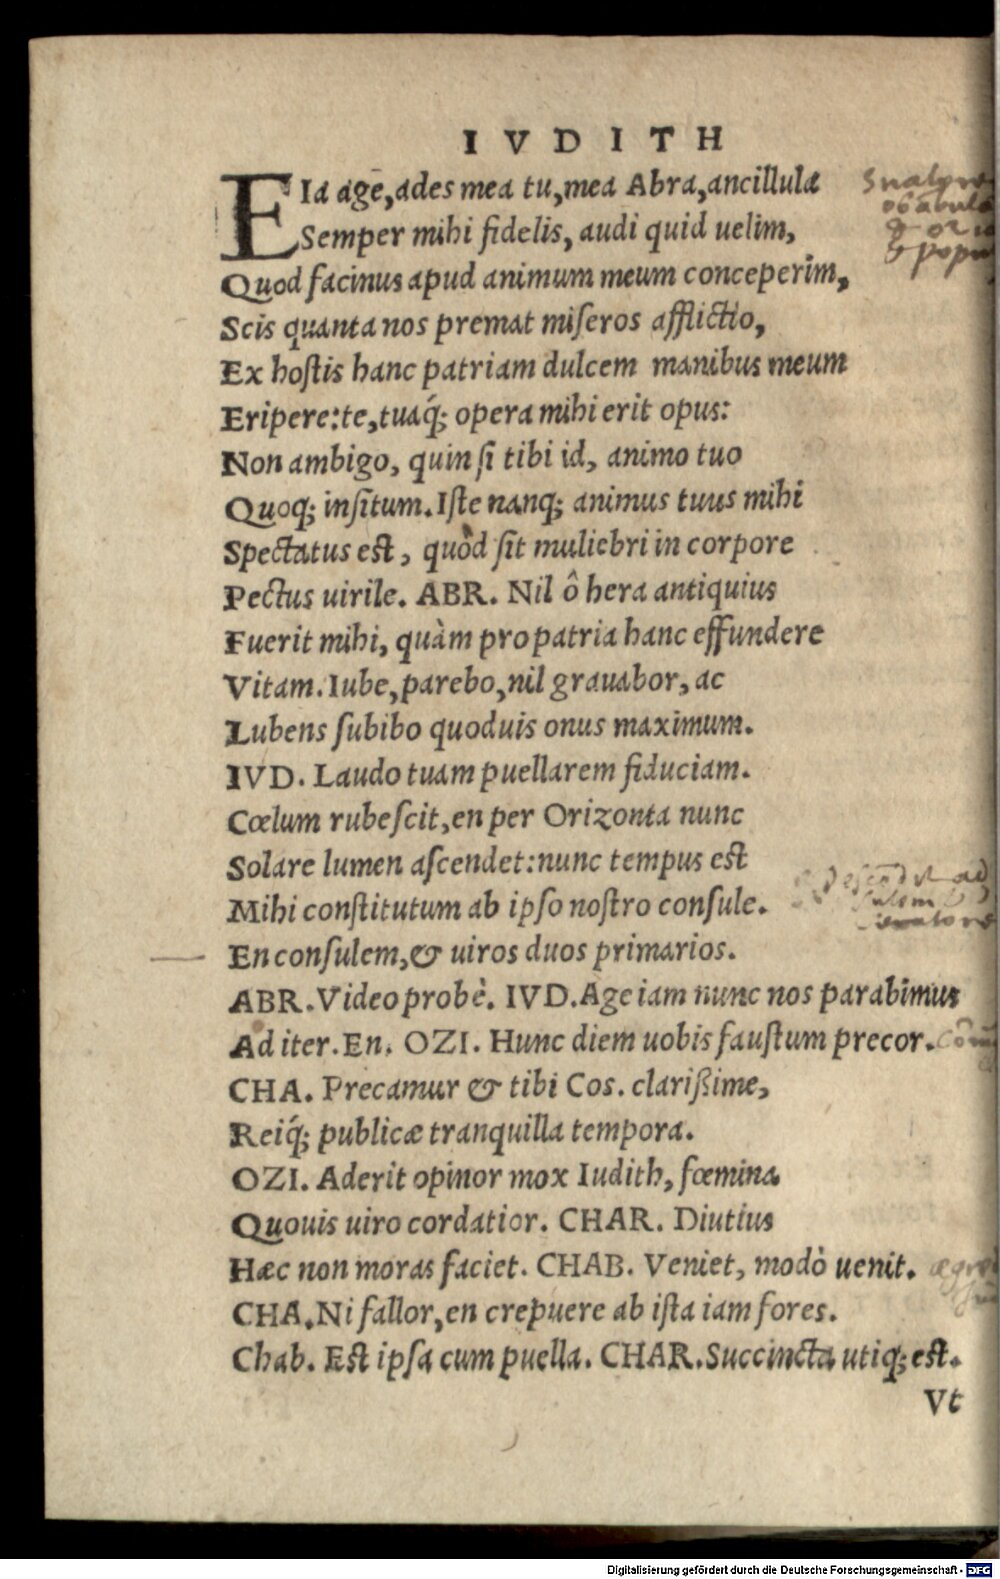 IVDITH
EIa age, ades mea tu, mea Abra, ancillula
Semper mihi fidelis, audi quid uelim,
Quod facinus apud animum meum conceperim,
Scis quanta nos premat miſeros afflictio,
Ex hoſtis hanc patriam dulcem manibus meum
Eripere: te, tuaq́; opera mihi erit opus:
Non ambigo, quin ſi tibi id, animo tuo
Quoq; inſitum. Iſte nanq; animus tuus mihi
Spectatus eſt, quòd ſit muliebri in corpore
Pectus uirile. ABR. Nil ô hera antiquius
Fuerit mihi, quàm pro patria hanc effundere
Vitam. Iube, parebo, nil grauabor, ac
Lubens ſubibo quoduis onus maximum.
IVD. Laudo tuam puellarem fiduciam.
Cœlum rubeſcit, en per Orizonta nunc
Solare lumen aſcendet: nunc tempus eſt
Mihi conſtitutum ab ipſo noſtro conſule.
En conſulem, & uiros duos primarios.
ABR. Video probè. IVD. Age iam nunc nos parabimus
Ad iter. En. OZI. Hunc diem uobis fauſtum precor.
CHA. Precamur & tibi Cos. clariſsime,
Reiq́; publicæ tranquilla tempora.
OZI. Aderit opinor mox Iudith, fœmina
Quouis uiro cordatior. CHAR. Diutius
Hæc non moras faciet. CHAB. Veniet, modò uenit.
CHA. Ni fallor, en crepuere ab iſta iam fores.
Chab. Eſt ipſa cum puella. CHAR. Succincta utiq; eſt.
Vt
Digitalisierung gefördert durch die Deutsche Forschungsgemeinschaft - DFG